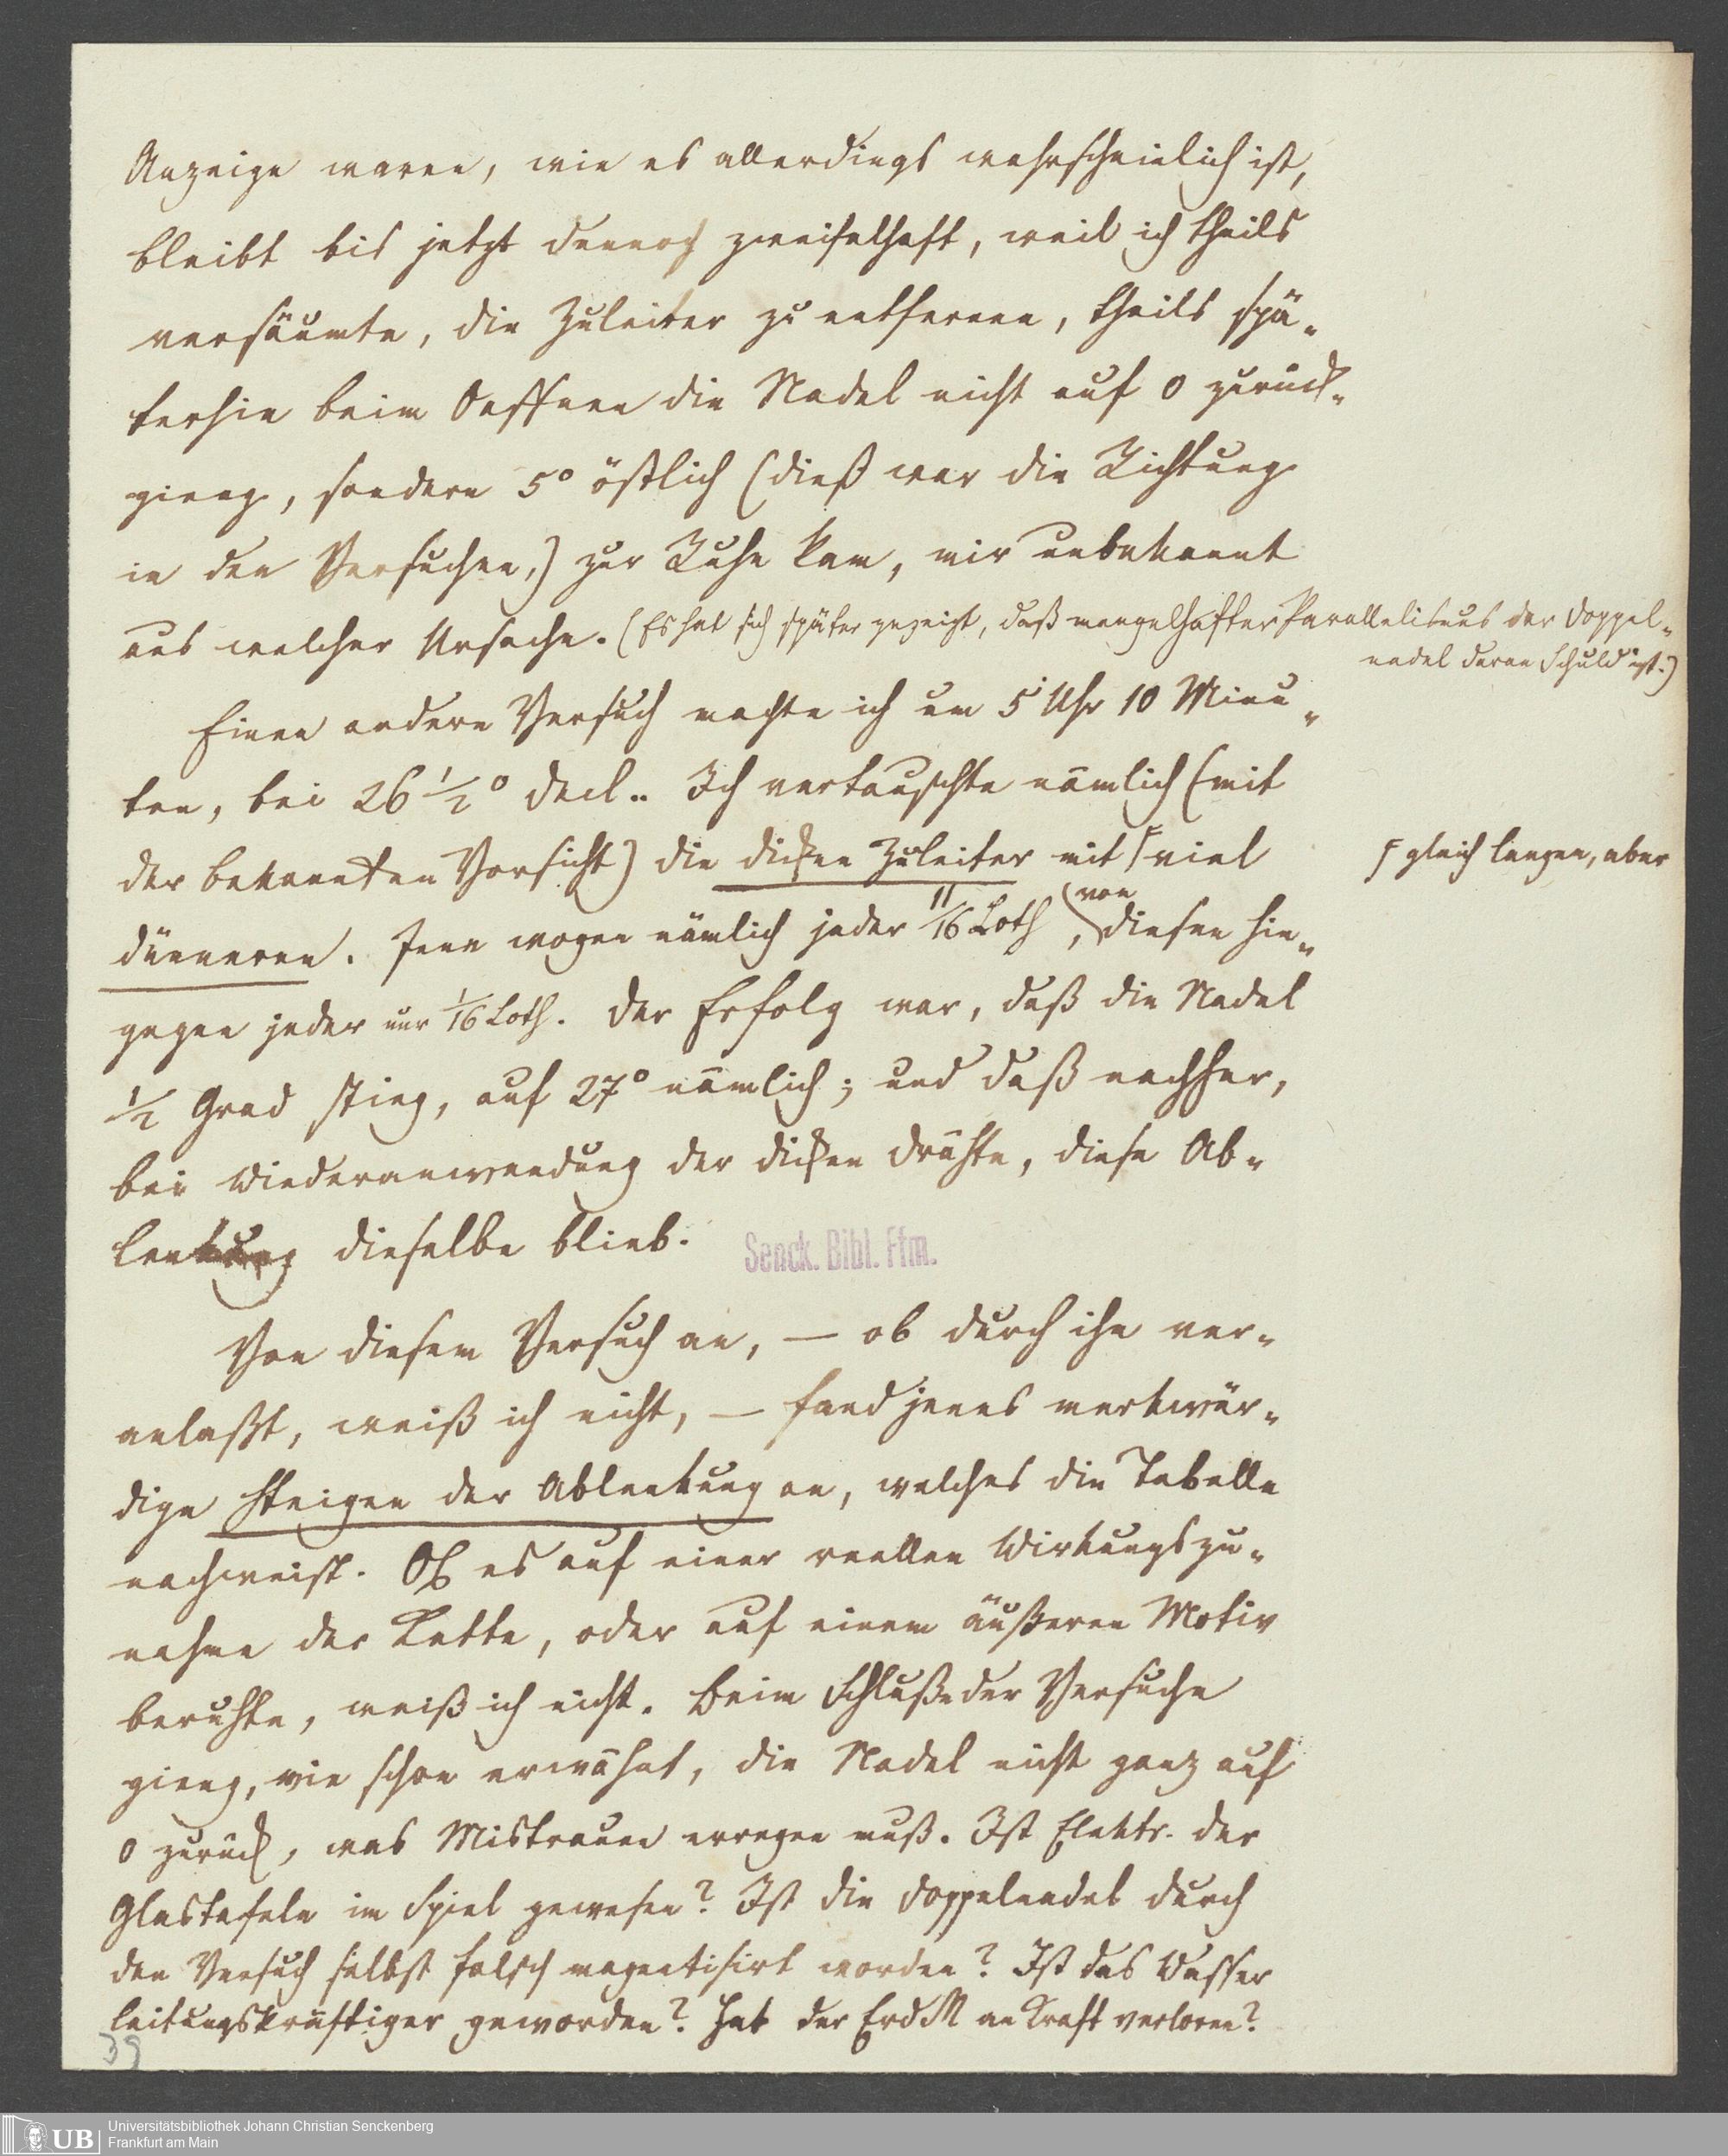 Anzeige waren, wie es allerdings wahrscheinlich ist,
bleibt bis jetzt dennoch zweifelhaft, weil ich theils
versäumte, die Zuleiter zu entfernen, theils spä-
terhin beim Oeffnen die Nadel nicht auf 0 zurück-
gieng, sondern 5° östlich (dieß war die Richtung
in den Versuchen,) zur Ruhe kam, mir unbekannt
aus welcher Ursache. (Es hat sich später gezeigt, daß mangelhafter Parallelismus der Doppel-
nadel daran Schuld ist.)
Einen andern Versuch machte ich um 5 Uhr 10 Minu-
ten, bei 26 1/2° Decl.. Ich vertauschte nämlich (mit
der bekannten Vorsicht) die dicken Zuleiter mit viel
gleich langen, aber
dünneren. Jene wogen nämlich jeder 11/16 Loth, von diesen hin-
gegen jeder nur 1/16 Loth. Der Erfolg war, daß die Nadel
1/2 Grad stieg, auf 27° nämlich; und daß nachher,
bei Wiederanwendung der dicken Drähte, diese Ab-
lenkung dieselbe blieb.
Senck. Bibl. Ffm.
Von diesem Versuch an, — ob durch ihn ver-
anlaßt, weiß ich nicht, — fand jenes merkwür-
dige Steigen der Ablenkung an, welches die Tabelle
nachweist. Ob es auf einer reellen Wirkungszu-
nahme der Kette, oder auf einem äußeren Motiv
beruhte, weiß ich nicht. Beim Schluße der Versuche
gieng, wie schon erwähnt, die Nadel nicht ganz auf
0 zurück, was Mistrauen erregen muß. Ist Elektr. der
Glastafeln im Spiel gewesen? Ist die Doppelnadel durch
den Versuch selbst falsch magnetisirt worden? Ist das Wasser
leitungskräftiger geworden? Hat der ErdM an Kraft verloren?
39
UB
Universitätsbibliothek Johann Christian Senckenberg
Frankfurt am Main